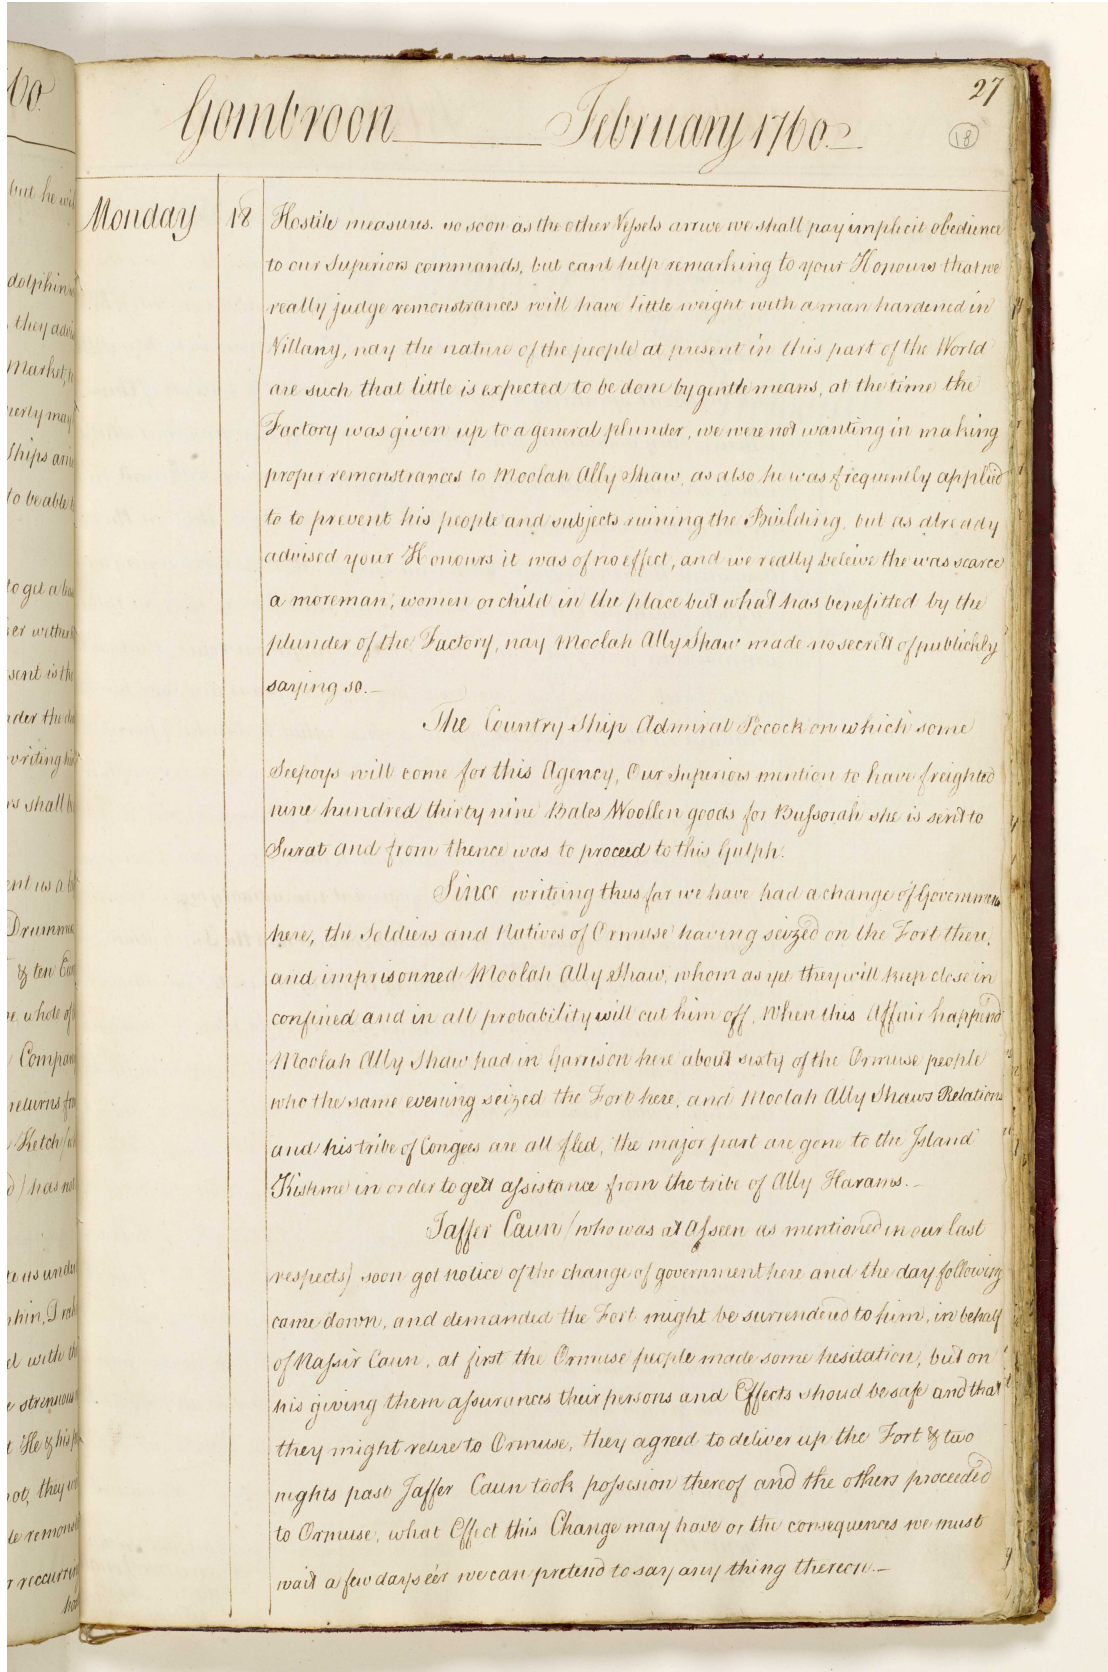 27
Gombroon February 1760.
18
Monday 18 Hostile measures. so soon as the other Vessels arrive we shall pay implicit obedience
to our Superiors commands, but cant help remarking to your Honours that we
really judge remonstrances will have little weight with a man hardened in
Villany, nay the nature of the people at present in this part of the World
are such that little is expected to be done by gentle means, at the time the
Factory was given up to a general plunder, we were not wanting in making
proper remonstrances to Moolah Ally Shaw, as also he was frequently applied
to to prevent his people and subjects ruining the Building, but as already
advised your Honours it was of no effect, and we really beleive the was scarce
a moreman, women or child in the place but what has benefitted by the
plunder of the Factory, nay Moolah Ally Shaw made no secrett of publickly
saying so.
The Country Ship Admiral Pocock on which some
Seepoys will come for this Agency, Our Superiors mention to have freighted
nine hundred thirty nine Bales Woollen goods for Bussorah she is sent to
Surat and from thence was to proceed to this Gulph.
Since writing thus far we have had a change of Government
here, the Soldiers and Natives of Ormuse having seized on the Fort there,
and imprisonned Moolah Ally Shaw, whom as yet they will keep close in
confined and in all probability will cut him off, When this Affair happend
Moolah Ally Shaw had in Garrison here about sixty of the Ormuse people
who the same evening seized the Fort here, and Moolah Ally Shaws Relations
and his tribe of Congees are all fled, the major part are gone to the Island
Kishme in order to gett assistance from the tribe of Ally Harams.
Jaffer Caun (who was at Asseen as mentioned in our last
respects) soon got notice of the change of government here and the day following
came down, and demanded the Fort might be surrendered to him, in behalf
of Nassir Caun, at first the Ormuse people made some hesitation, but on
his giving them assurances their persons and Effects shoud be safe and that
they might retire to Ormuse, they agreed to deliver up the Fort & two
nights past Jaffer Caun took possesion thereof and the others proceeded
to Ormuse, what Effect this Change may have or the consequences we must
wait a few days e'er we can pretend to say any thing thereon.